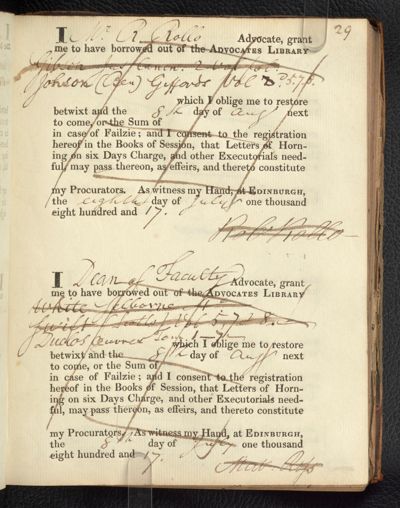 29
I Mr R. Rollo Advocate, grant
me to have borrowed out of the Advocates Library
2 Vol
Johnson (Ben) Giffords Vol
which I oblige me to restore
betwixt and the 8th day of Augt next
to come, or the Sum of
in case of Failzie; and I consent to the registration
hereof in the Books of Session, that Letters of Horn-
ing on six Days Charge, and other Executorials need-
ful, may pass thereon, as effeirs, and thereto constitute
my Procurators. As witness my Hand, at Edinburgh,
the eighth day of July one thousand
eight hundred and 17.
Robt Rollo
I Dean of Faculty Advocate, grant
me to have borrowed out of the Advocates Library
White Selborne
Swift Scotts
Duclos œuvres tom 1-
which I oblige me to restore
betwixt and the 8th day of Augt next
to come, or the Sum of
in case of Failzie; and I consent to the registration
hereof in the Books of Session, that Letters of Horn-
ing on six Days Charge, and other Executorials need-
ful, may pass thereon, as effeirs, and thereto constitute
my Procurators. As witness my Hand, at Edinburgh,
the 8th day of July one thousand
eight hundred and 17.
Matt Ross